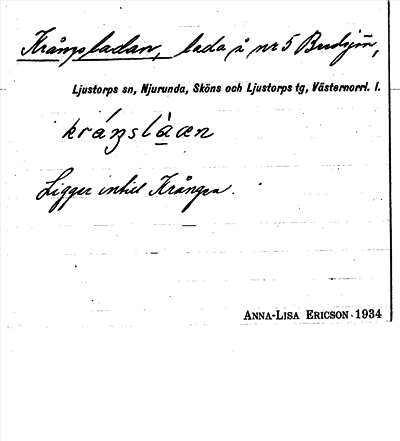 Krångsladan, lada å nr 5 Bredsjön,
Ljustorps sn, Njurunda, Sköns och Ljustorps tg, Västernorrl. l.
Ligger intill Krången.
ANNA-LISA ERICSON 1934